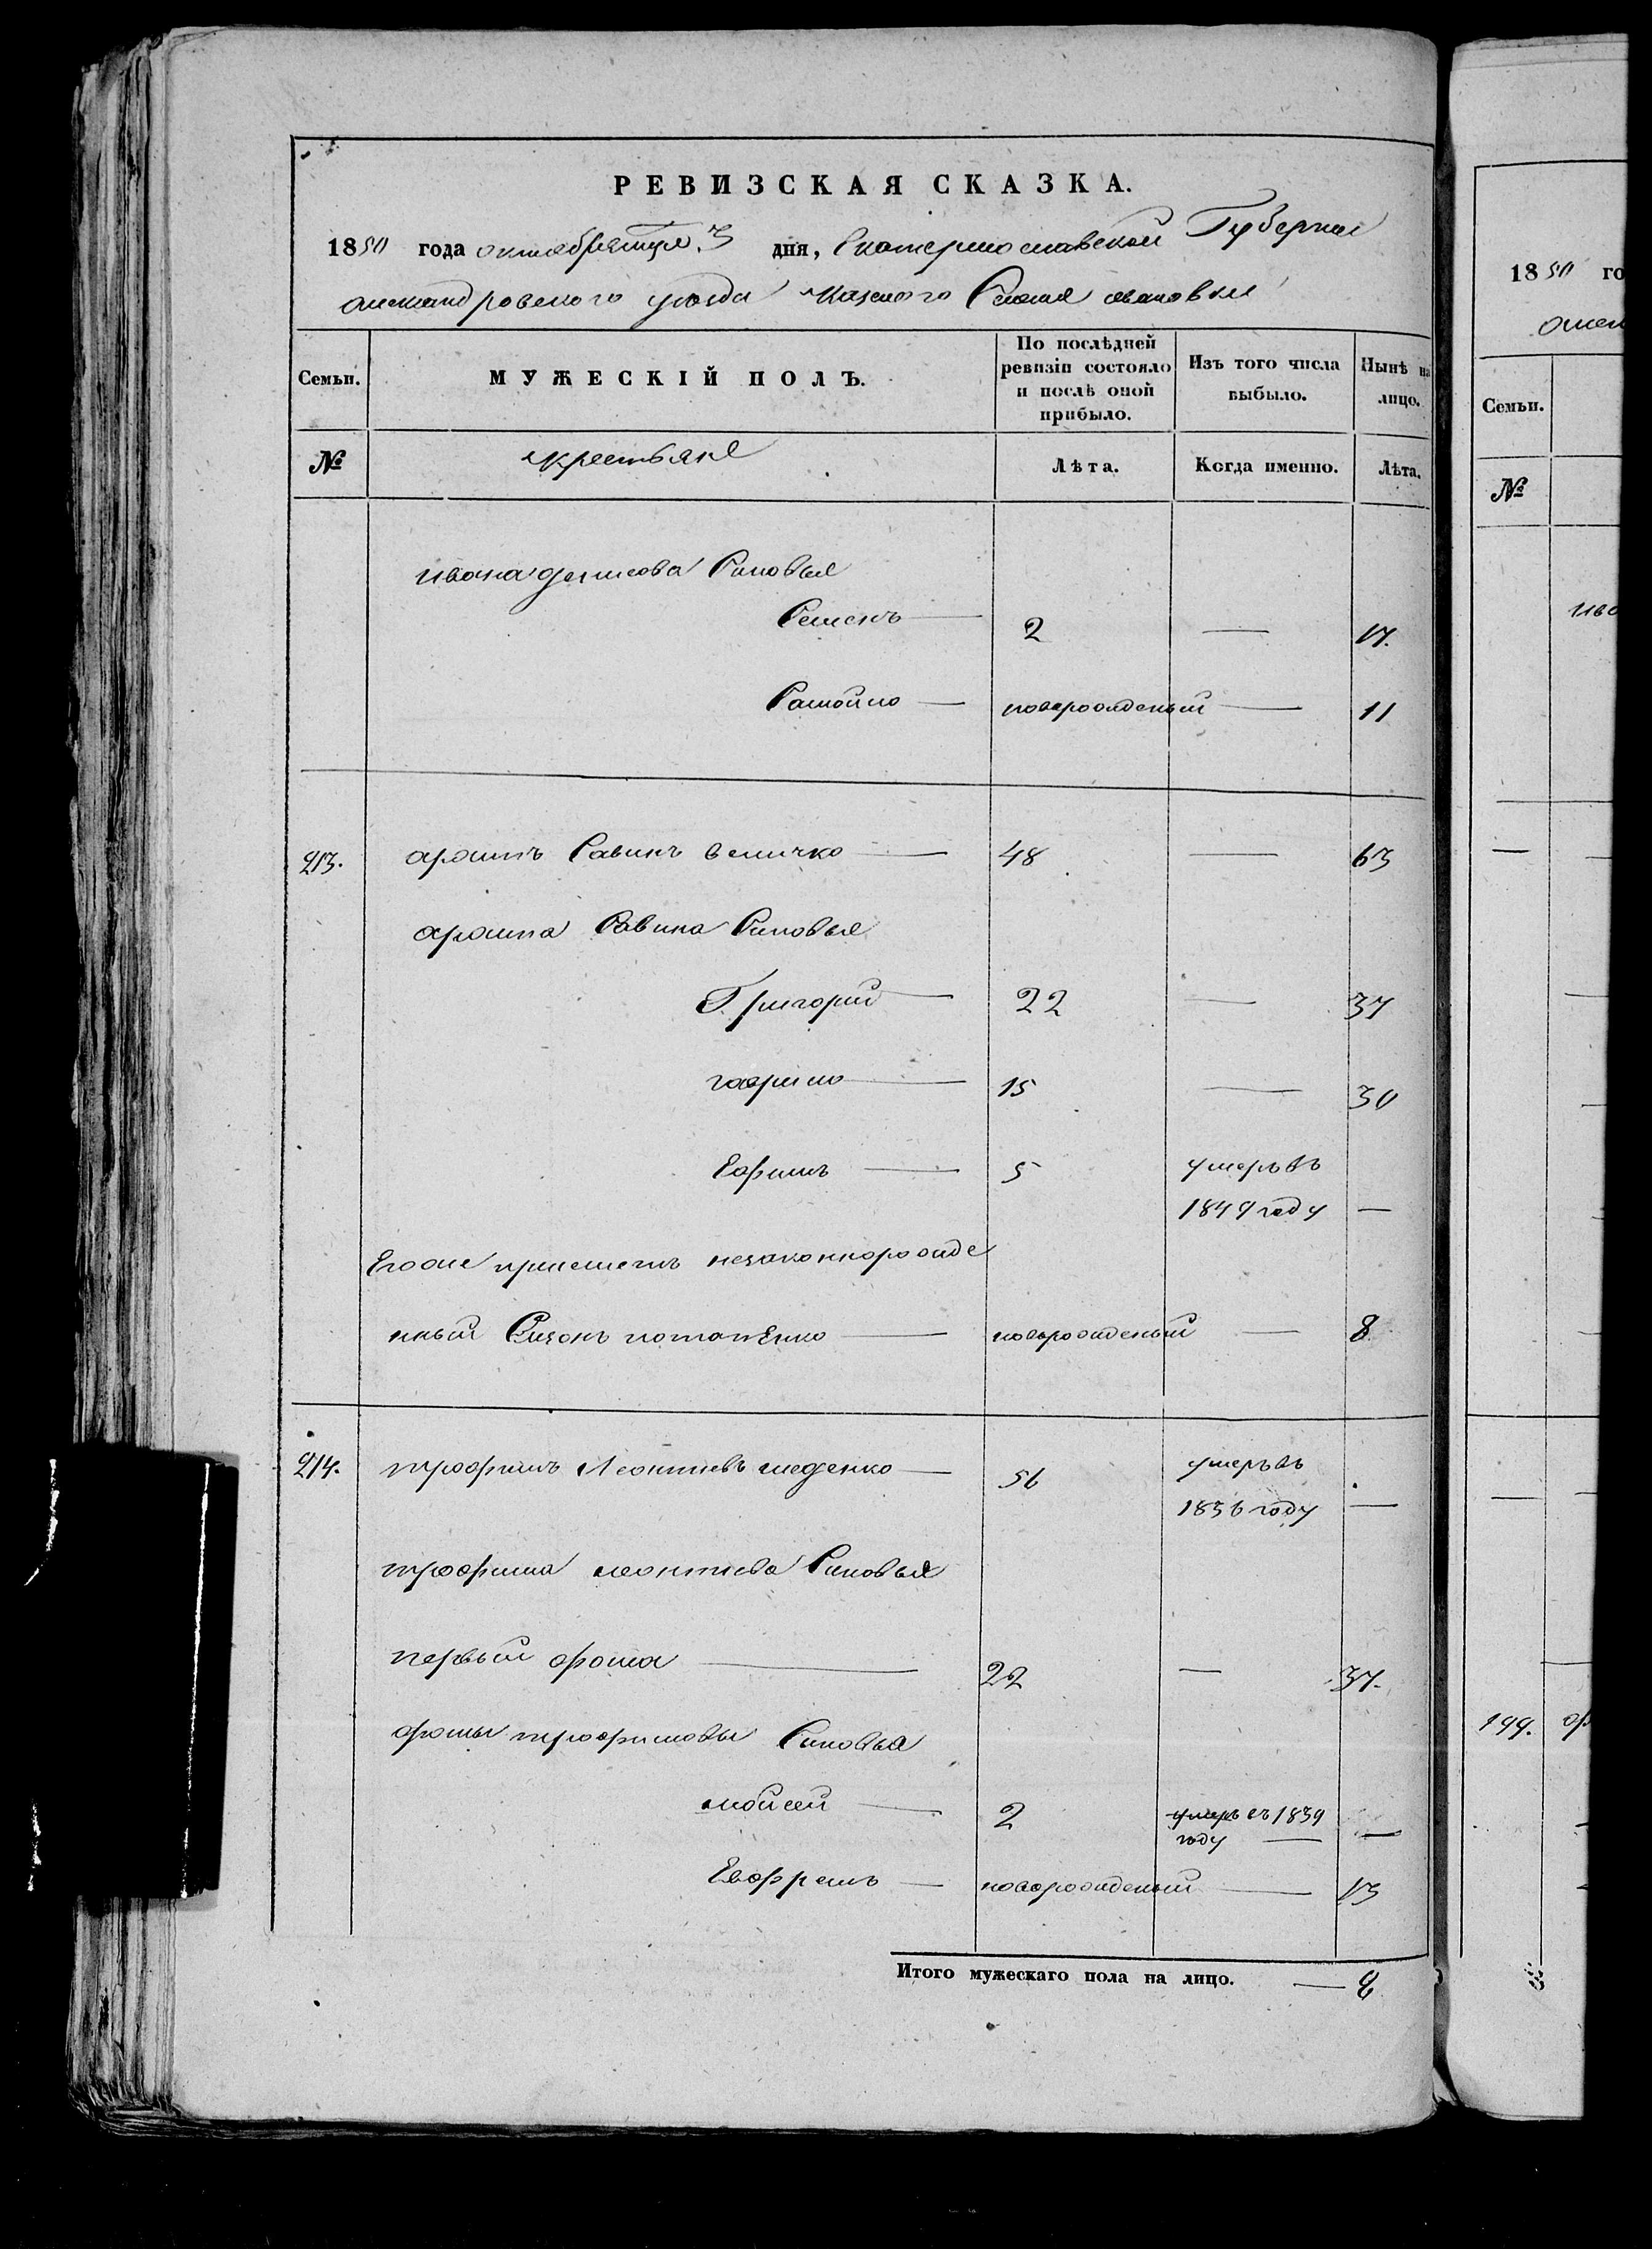 РЕВИЗСКАЯ СКАЗКА.
1850 года октября 3 дня, Екатеринославской Губернии
александровского уезда Казеного Селения ивановки
Семьи. МУЖЕСКІЙ ПОЛЪ. По послѣдней ревизіи состояло и послѣ оной прибыло. Изъ того числа выбыло. Нынѣ на лицо.
№ крестьяне Лѣта. Когда именно. Лѣта.
ивана денисова Синовья
Семенъ — 2 — 17.
Самойло — новорожденый — 11
213. архипъ Савинъ величко — 48 — 63
архипа Савина Синовья
Григорий — 22 — 37
гаврило — 15 — 30
Ефимъ — 5 умеръ въ
1849 году —
Егоже приемышъ незаконнорожде
нный Сизонъ потапенко — новорожденый — 8
214. трофимъ Леонтиевъ — 56 умеръ въ
1836 году —
трофима леонтиева Синовья
первый фома — 22 — 37.
фомы трофимовы Синовья
мойсей — 2 умеръ въ 1839
году — —
Евфремъ — новорожденый — 13
Итого мужескаго пола на лицо. — 8
1850 го
Семьи.
№
ива
199.